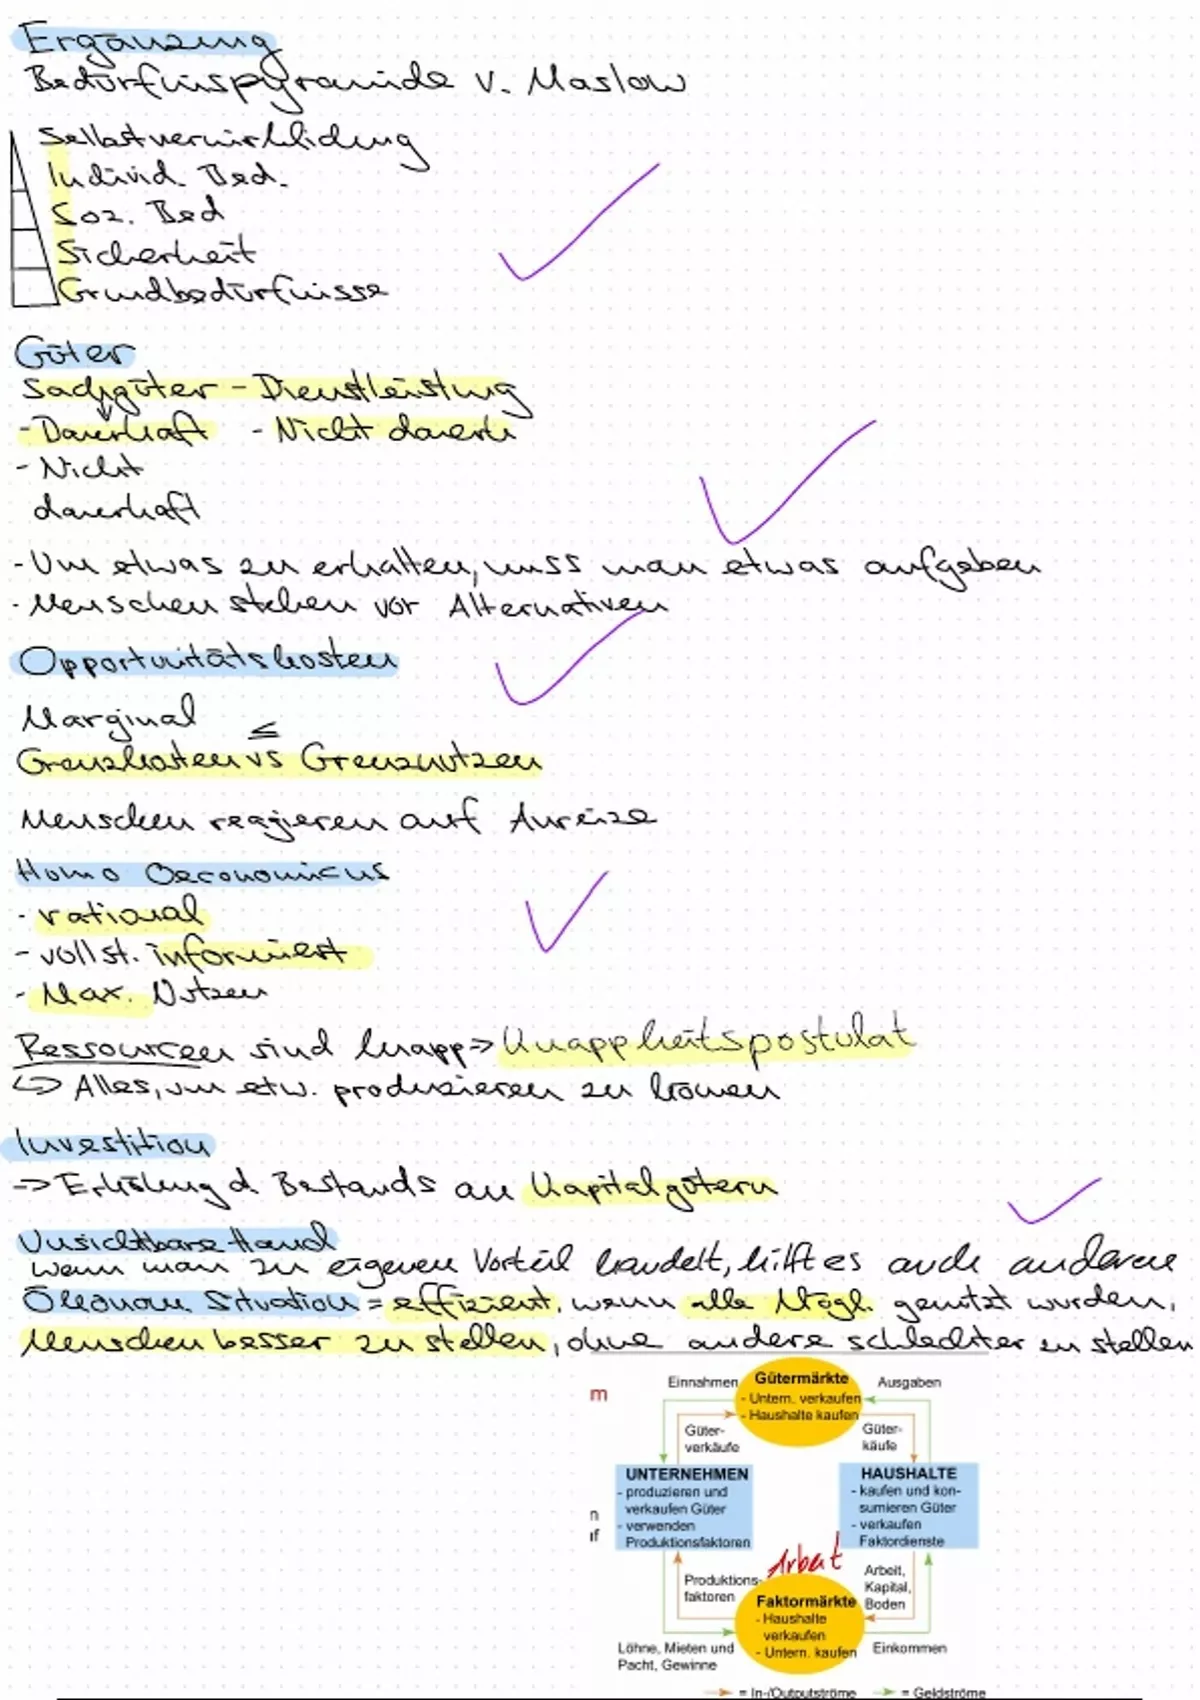 Ergänzung
Bedürfnispyramide v. Maslow
Selbstverwirklichung
Individ. Bed.
Soz. Bed
Sicherheit
Grundbedürfnisse
Güter
Sachgüter - Dienstleistung
- Dauerhaft - Nicht dauerh
- Nicht
dauerhaft
- Um etwas zu erhalten, muss man etwas aufgeben
- Menschen stehen vor Alternativen
Opportunitätskosten
Marginal
≤
Grenzkosten vs Grenznutzen
Menschen reagieren auf Anreize
Homo Oeconomicus
- rational
- vollst. informiert
- Max. Nutzen
Ressourcen sind knapp => Knappheitspostulat
↳ Alles, um etw. produzieren zu können
Investition
=> Erhöhung d. Bestands an Kapitalgütern
Unsichtbare Hand
wenn man zu eigenen Vorteil handelt, hilft es auch anderen
Ökonom. Situation = effizient, wenn alle Mögl. genutzt wurden,
Menschen besser zu stellen, ohne andere schlechter zu stellen
m
Einnahmen
Gütermärkte
- Untern. verkaufen
- Haushalte kaufen
Ausgaben
Güter-
verkäufe
Güter-
käufe
UNTERNEHMEN
- produzieren und
verkaufen Güter
- verwenden
Produktionsfaktoren
HAUSHALTE
- kaufen und kon-
sumieren Güter
- verkaufen
Faktordienste
n
uf
Arbeit
Produktions-
faktoren
Faktormärkte
- Haushalte
verkaufen
- Untern. kaufen
Arbeit,
Kapital,
Boden
Löhne, Mieten und
Pacht, Gewinne
Einkommen
= In-/Outputströme
= Geldströme